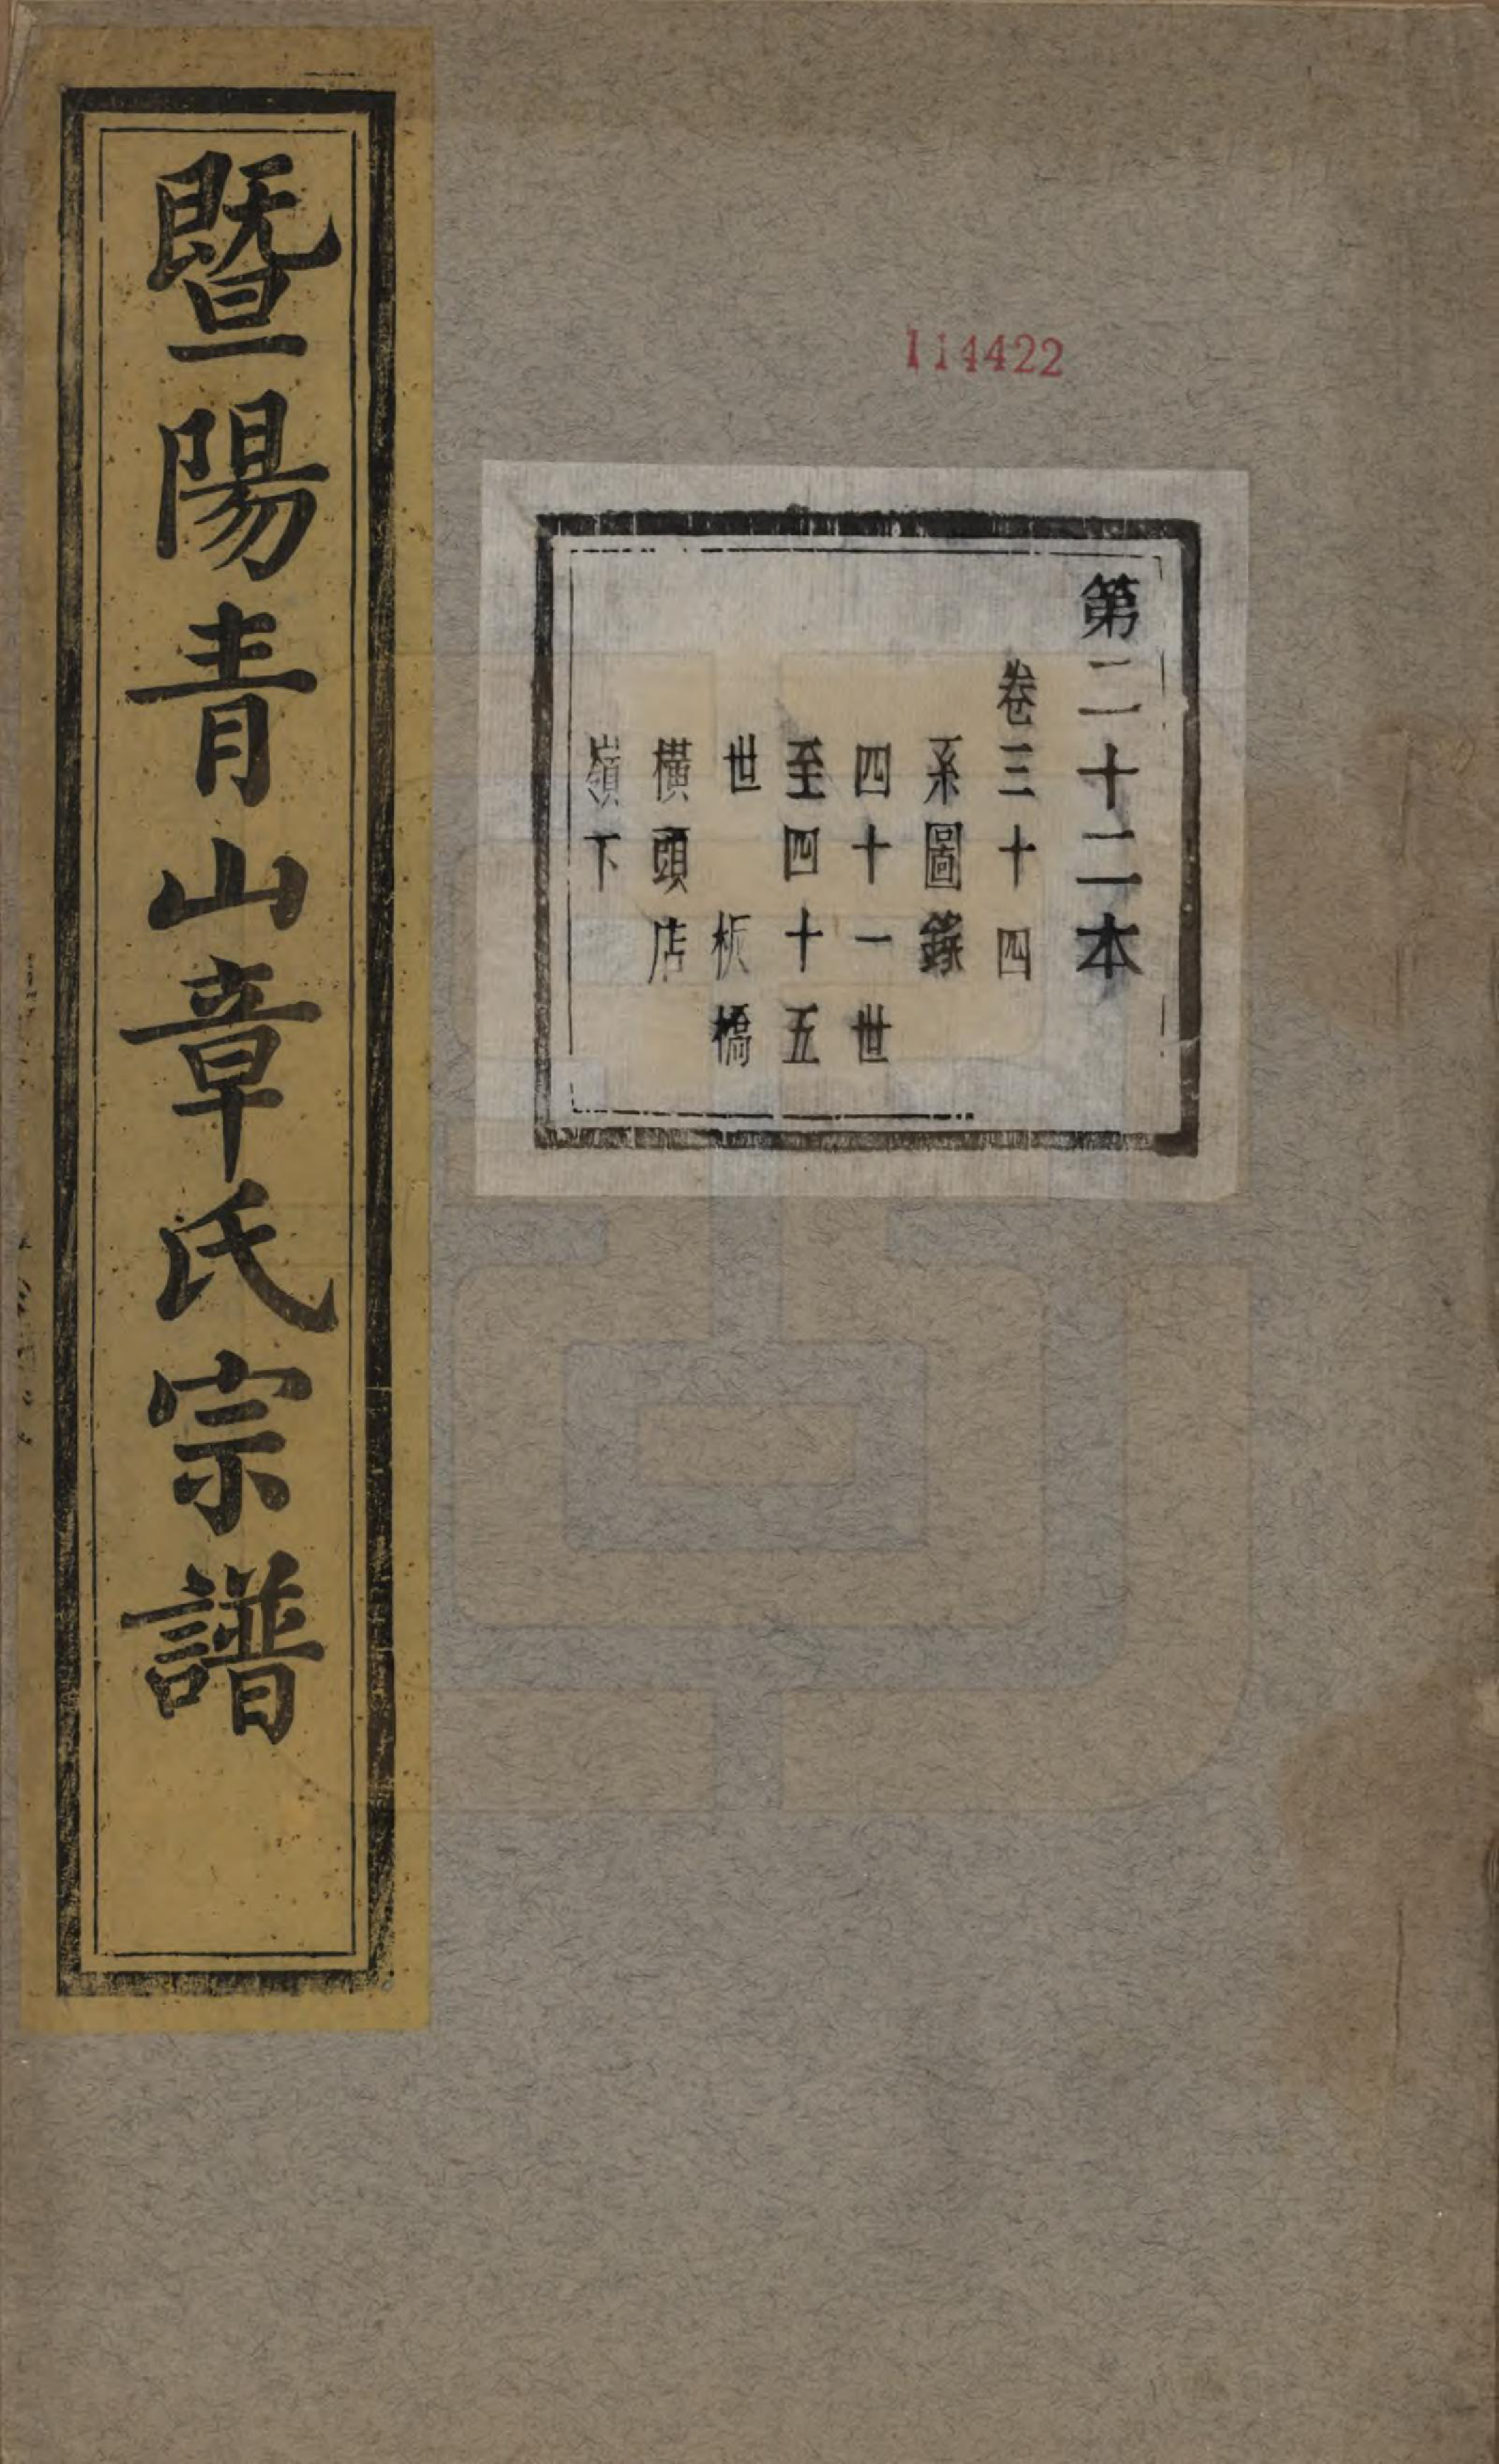 114422
第二十二本
卷三十四
系圖錄
四十一世
至四十五
世　板橋
橫頭店
嶺下
暨陽青山章氏宗譜